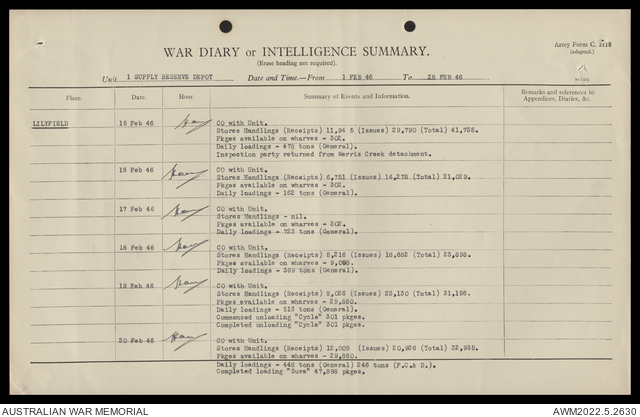 Army Form C. 2118
(adapted).
WAR DIARY or INTELLIGENCE SUMMARY.
(Erase heading not required).
Unit 1 SUPPLY RESERVE DEPOT Date and Time.—From 1 FEB 46 To 28 FEB 46
Place. Date. Hour. Summary of Events and Information. Remarks and references to Appendices, Diaries, &c.
LILYFIELD 15 Feb 46 CO with Unit.
Stores Handlings (Receipts) 11,94 5 (Issues) 29,790 (Total) 41,735.
Pkges available on wharves - 302.
Daily loadings - 478 tons (General).
Inspection party returned from Werris Creek detachment.
16 Feb 46 CO with Unit.
Stores Handlings (Receipts) 6,751 (Issues) 14,278 (Total) 21,029.
Pkges available on wharves - 302.
Daily loadings - 162 tons (General).
17 Feb 46 CO with Unit.
Stores Handlings - nil.
Pkges available on wharves - 302.
Daily loadings - 723 tons (General).
18 Feb 46 CO with Unit.
Stores Handlings (Receipts) 5,216 (Issues) 18,682 (Total) 23,898.
Pkges available on wharves - 9,098.
Daily loadings - 369 tons (General).
19 Feb 46 CO with Unit.
Stores Handlings (Receipts) 8,026 (Issues) 23,130 (Total) 31,156.
Pkges available on wharves - 29,880.
Daily loadings - 513 tons (General).
Commenced unloading "Cycle" 301 pkges.
Completed unloading "Cycle" 301 pkges.
20 Feb 46 CO with Unit.
Stores Handlings (Receipts) 12,009 (Issues) 20,926 (Total) 32,935.
Pkges available on wharves - 29,880.
Daily loadings - 448 tons (General) 246 tons (F.C.& D.).
Completed loading "Suva" 47,898 pkges.
AUSTRALIAN WAR MEMORIAL AWM2022.5.2630